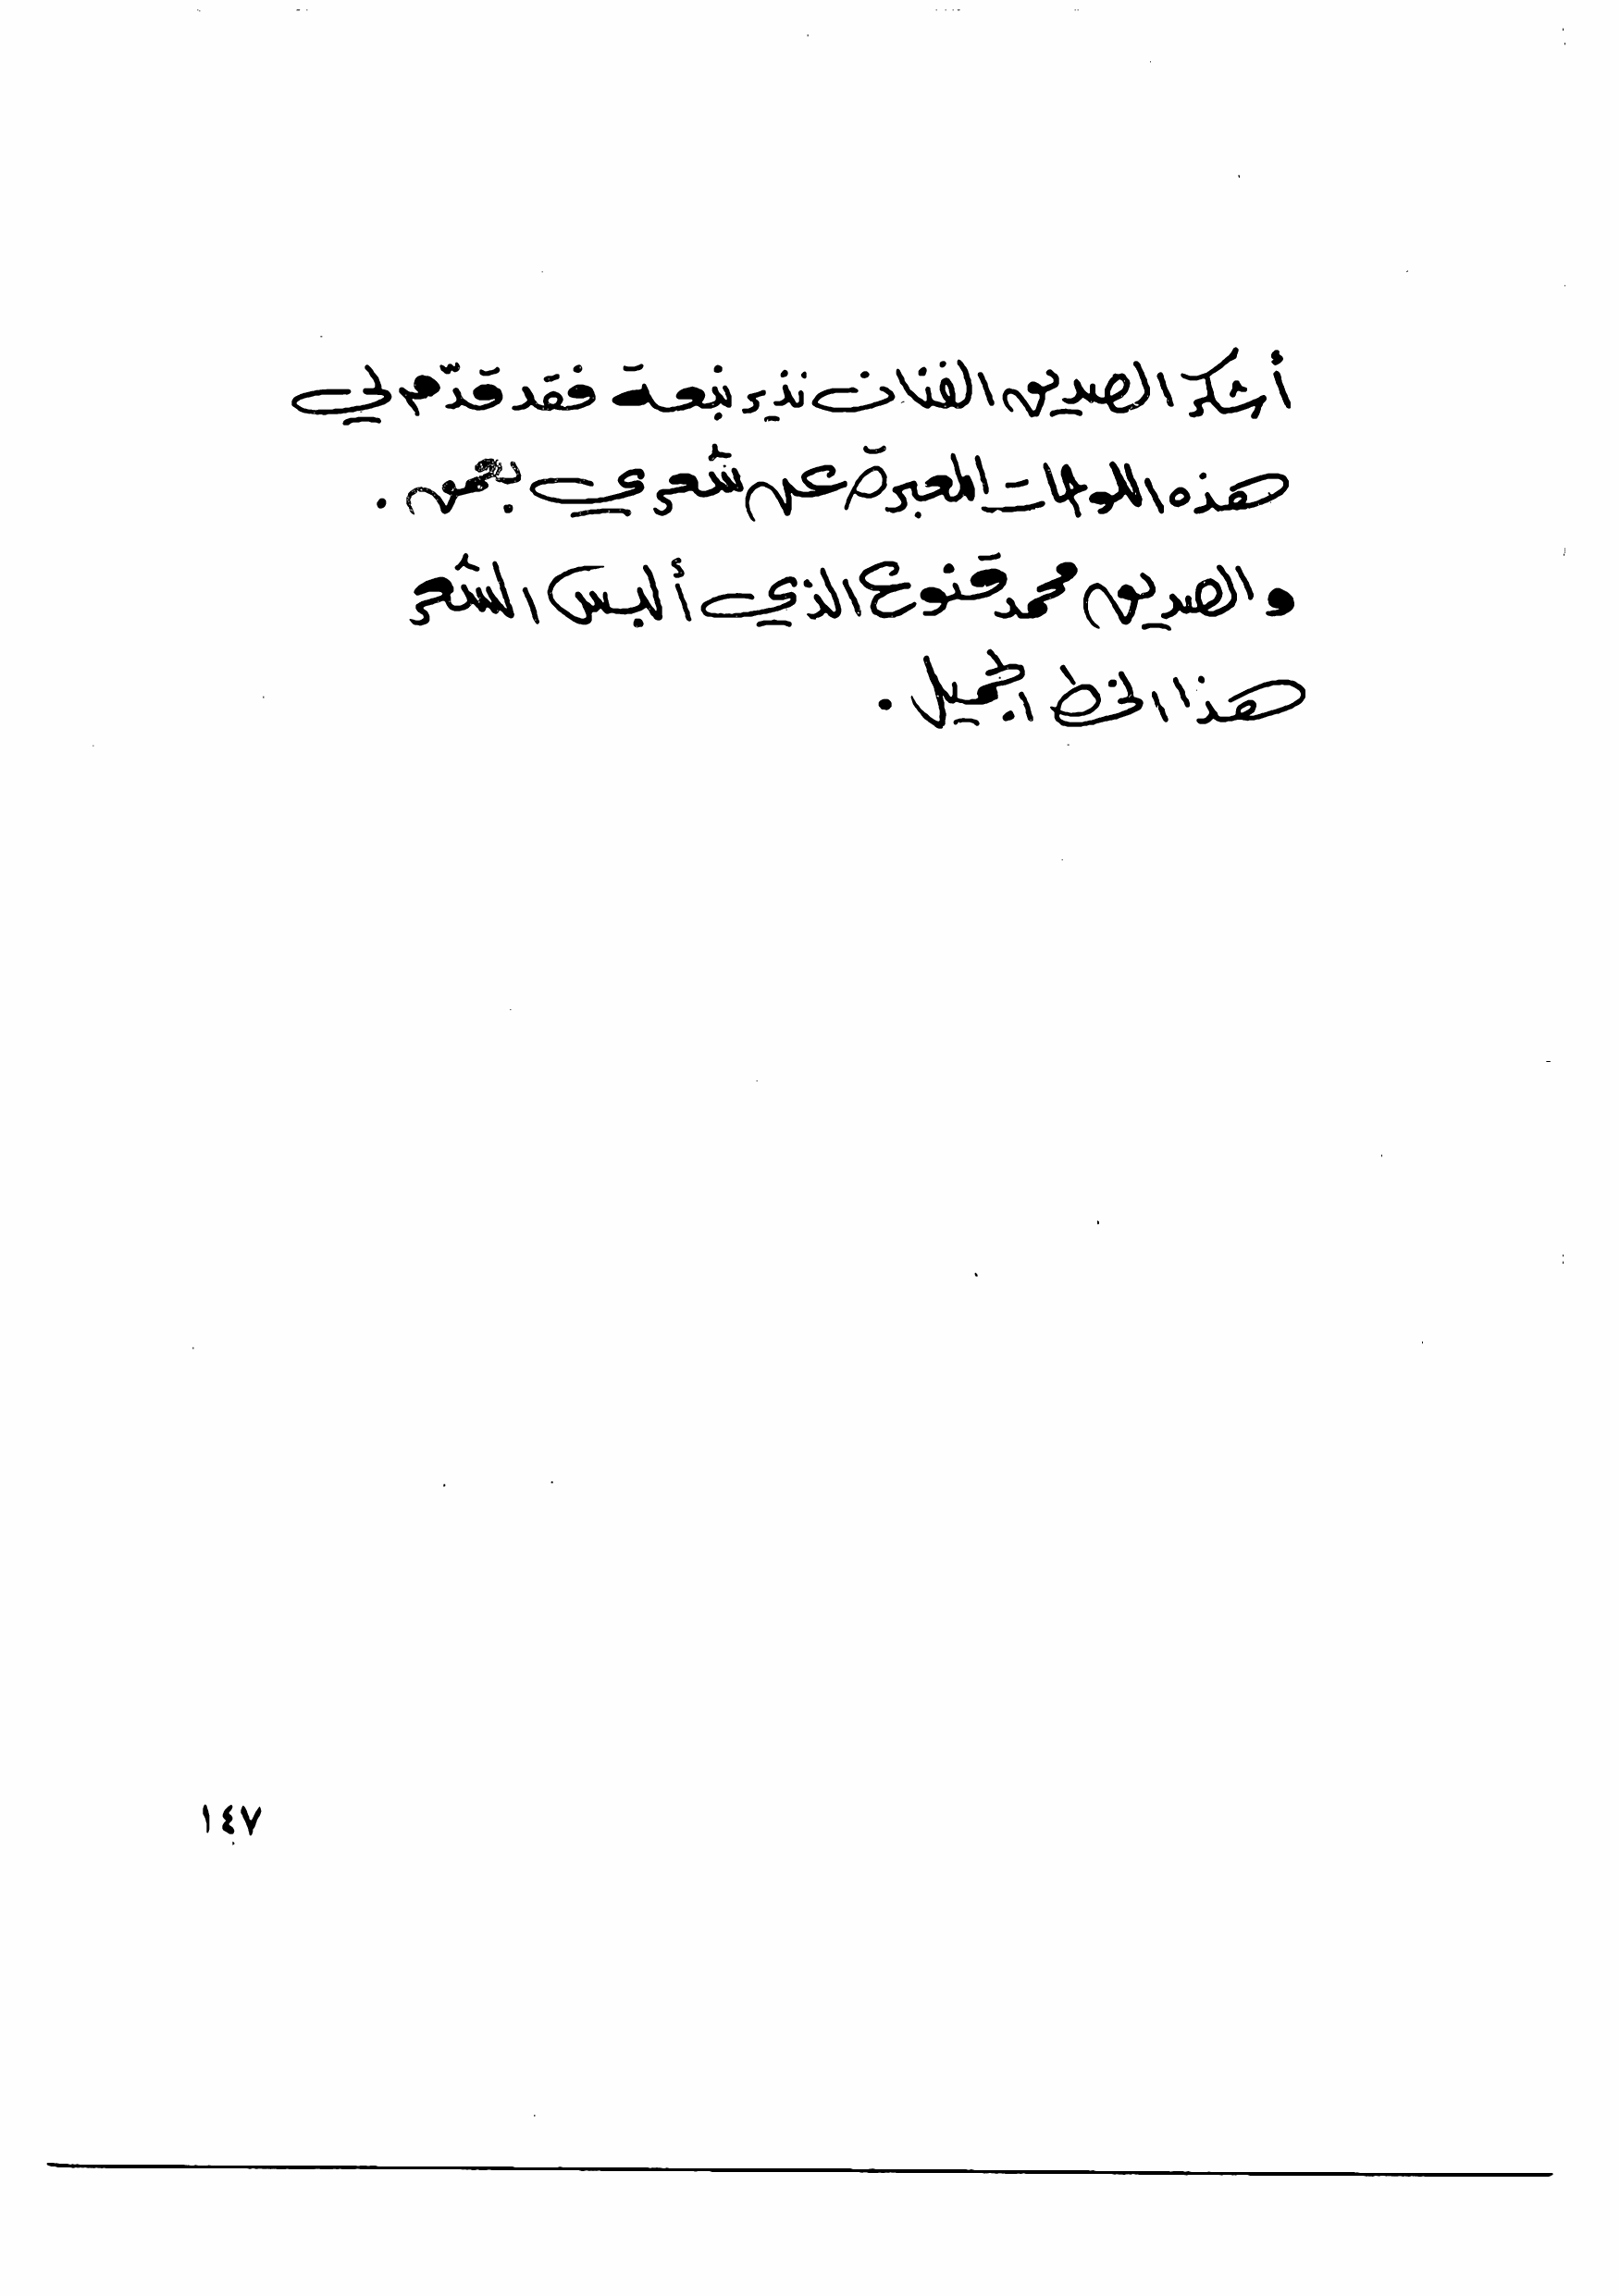 أشكر الصديق الفنان نذير نبعة فقد قدّم لي
هذه اللوحات المعبرة عن شعري بعمق .
والصديق محمد قنوع الذي ألبس الشعر
هذا الخط الجميل .
١٤٧